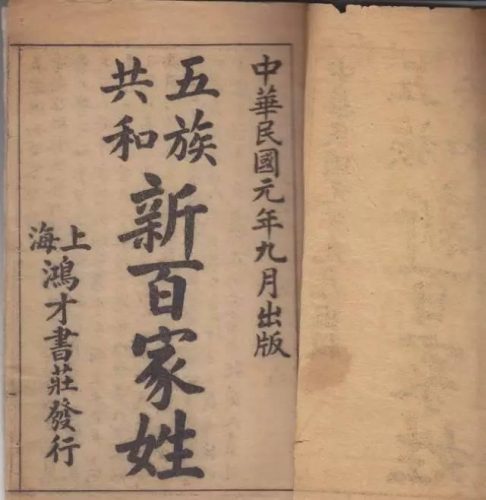 中華民國元年九月出版
五族
共和
新百家姓
上海
鴻才書莊發行